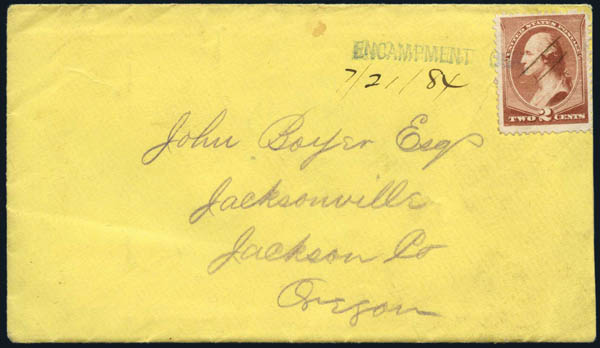 ENCAMPMENT
7/21/84
UNITED STATES POSTAGE
TWO 2 CENTS
John Boyer Esq
Jacksonville
Jackson Co
Oregon